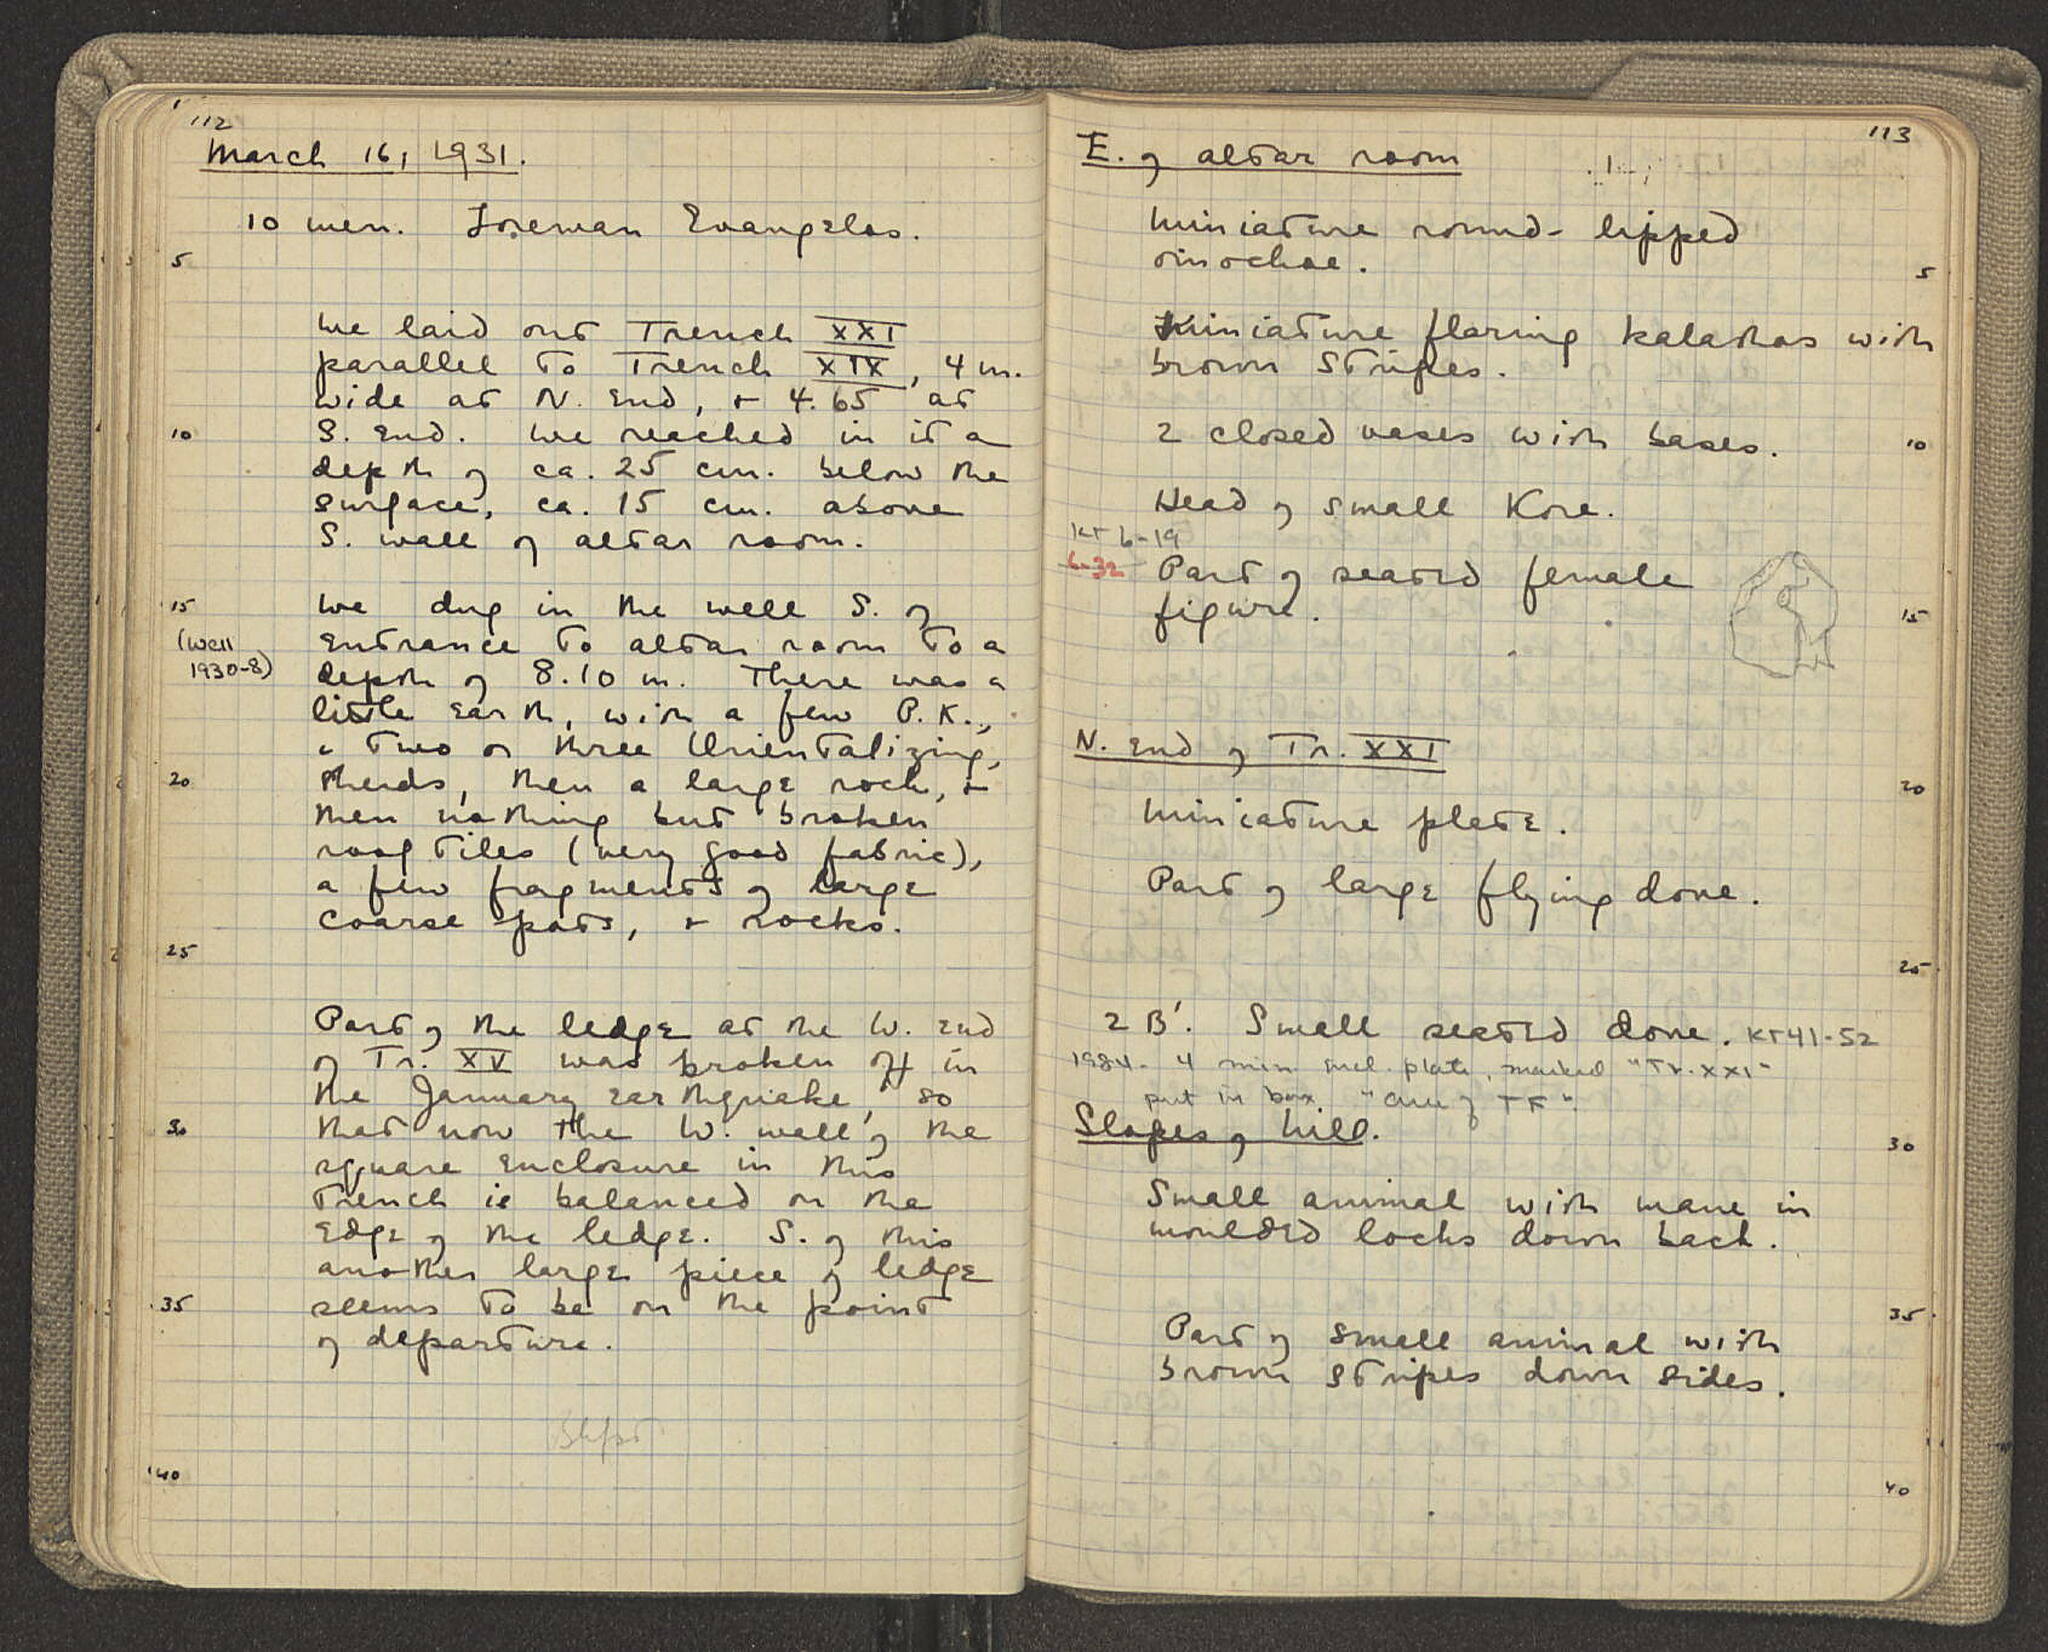 112
March 16, 1931.
10 men. Foreman Evangelos.
5
We laid out Trench XXI
parallel to Trench XIX, 4 m.
wide at N. End, + 4.65 at
10
S. End. We reached in it a
depth of ca. 25 cm. below the
surface, ca. 15 cm. above
S. wall of altar room.
15
We dug in the well S. of
(Well
1930-8)
Entrance to altar room to a
depth of 8.10 m. There was a
little Earth, with a few P.K.,
+ two or three Orientalizing,
20
sherds, then a large rock, +
then nothing but broken
roof tiles (very good fabric),
a few fragments of large
coarse pots, + rocks.
25
Part of the ledge at the W. End
of Tr. XV was broken off in
the January Earthquake, so
30
that now the W. wall of the
square Enclosure in this
trench is balanced on the
Edge of the ledge. S. of this
another large piece of ledge
35
seems to be on the point
of departure.
40
113
E. of altar room
Miniature round-lipped
oinochoe.
5
Miniature flaring kalathos with
brown stripes.
2 closed vases with bases.
10
Head of small Kore.
KT 6-19
6-32
Part of seated female
figure.
15
N. End of Tr. XXI
20
Miniature plate.
Part of large flying dove.
25
2 B'. Small seated dove. KT41-52
1984 - 4 min incl. plate, marked "Tr. XXI"
put in box "Area of TF".
Slopes of hill.
30
Small animal with mane in
moulded locks down back.
35
Part of small animal with
brown stripes down sides.
40